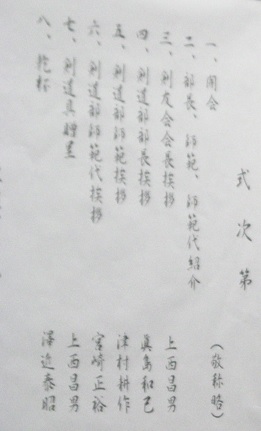 式次第
（敬称略）
一、開会
二、部長、師範、師範代紹介
三、剣友会会長挨拶　上西昌男
四、剣道部部長挨拶　眞島和己
五、剣道部師範挨拶　津村耕作
六、剣道部師範代挨拶　宮崎正裕
七、剣道具贈呈　上西昌男
八、乾杯　澤邉泰昭